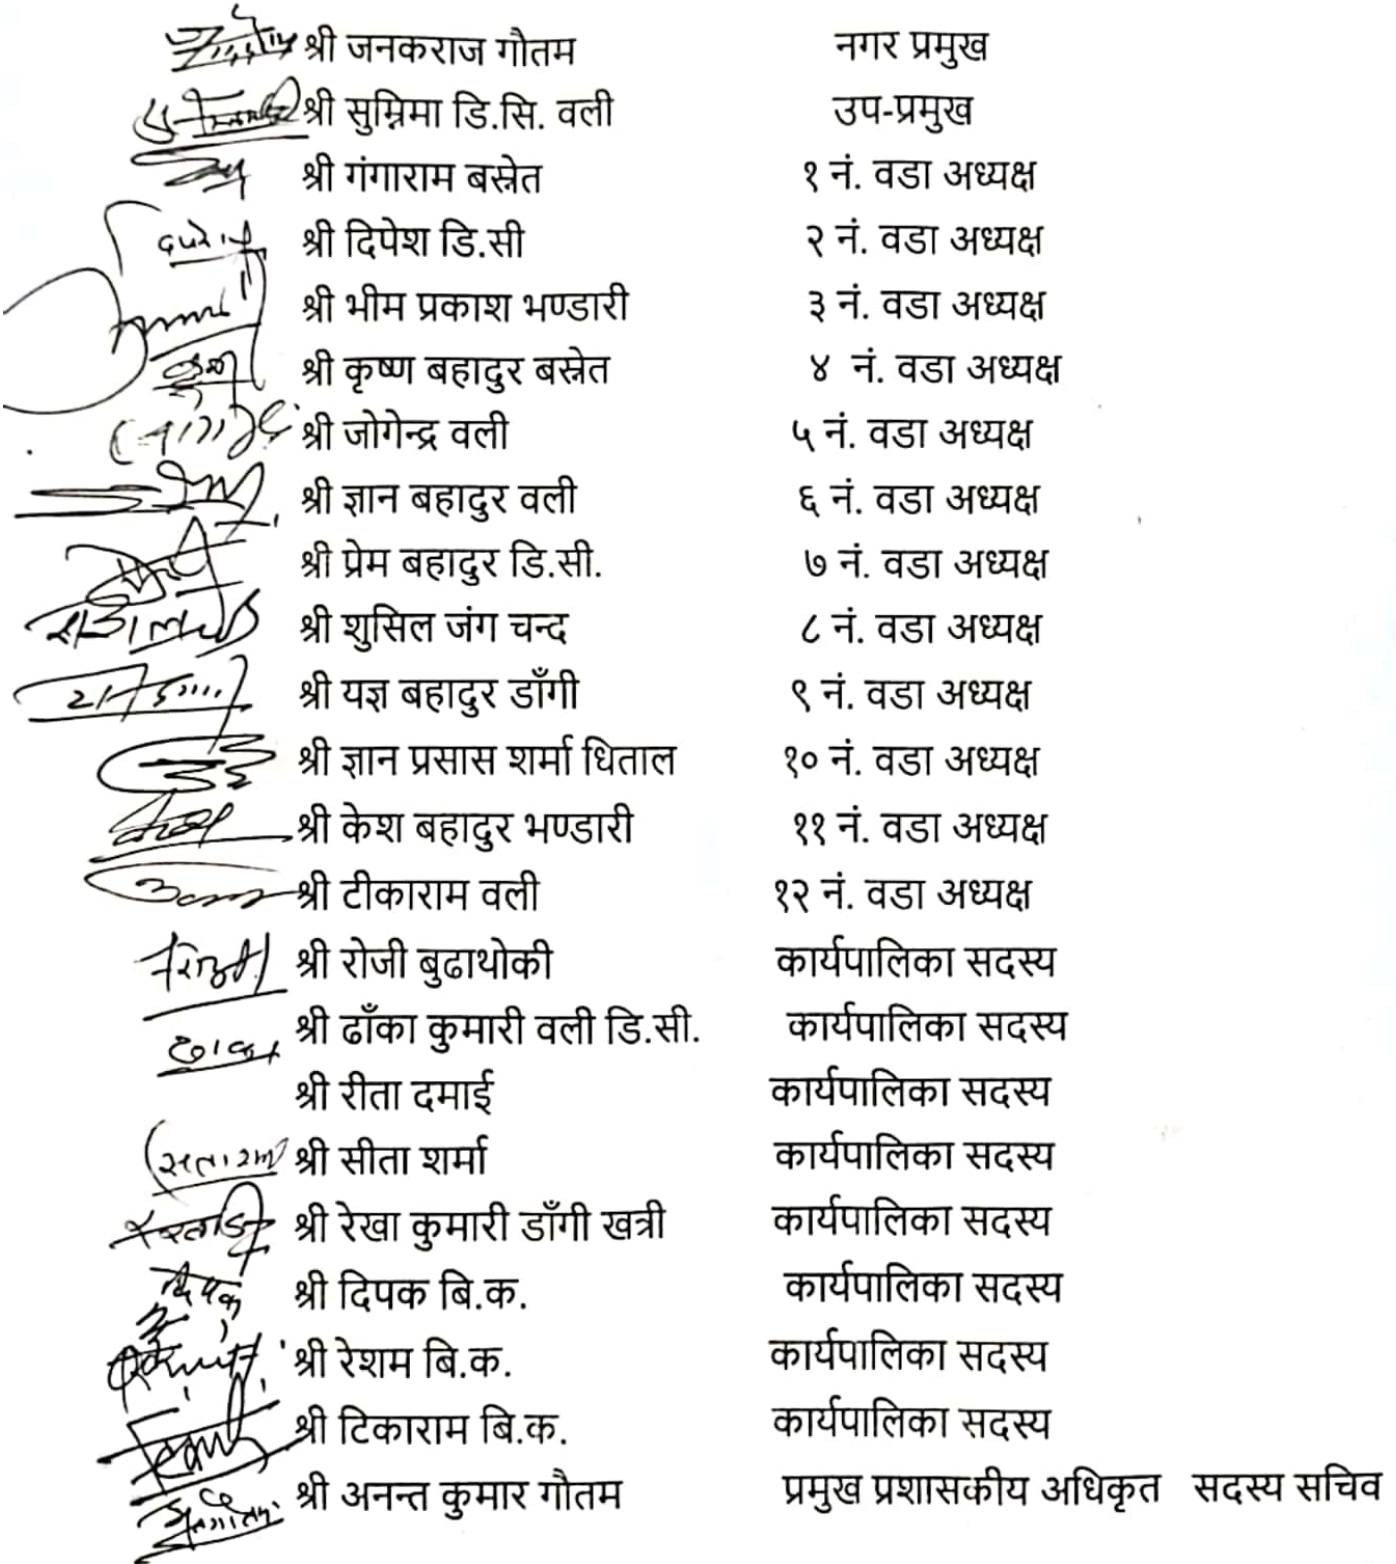 श्री जनकराज गौतम नगर प्रमुख
श्री सुम्निमा डि.सि. वली उप-प्रमुख
श्री गंगाराम बस्नेत १ नं. वडा अध्यक्ष
श्री दिपेश डि.सी २ नं. वडा अध्यक्ष
श्री भीम प्रकाश भण्डारी ३ नं. वडा अध्यक्ष
श्री कृष्ण बहादुर बस्नेत ४ नं. वडा अध्यक्ष
श्री जोगेन्द्र वली ५ नं. वडा अध्यक्ष
श्री ज्ञान बहादुर वली ६ नं. वडा अध्यक्ष
श्री प्रेम बहादुर डि.सी. ७ नं. वडा अध्यक्ष
श्री शुसिल जंग चन्द ८ नं. वडा अध्यक्ष
श्री यज्ञ बहादुर डाँगी ९ नं. वडा अध्यक्ष
श्री ज्ञान प्रसास शर्मा धिताल १० नं. वडा अध्यक्ष
श्री केश बहादुर भण्डारी ११ नं. वडा अध्यक्ष
श्री टीकाराम वली १२ नं. वडा अध्यक्ष
श्री रोजी बुढाथोकी कार्यपालिका सदस्य
श्री ढाँका कुमारी वली डि.सी. कार्यपालिका सदस्य
श्री रीता दमाई कार्यपालिका सदस्य
श्री सीता शर्मा कार्यपालिका सदस्य
श्री रेखा कुमारी डाँगी खत्री कार्यपालिका सदस्य
दिपक श्री दिपक बि.क. कार्यपालिका सदस्य
श्री रेशम बि.क. कार्यपालिका सदस्य
श्री टिकाराम बि.क. कार्यपालिका सदस्य
श्री अनन्त कुमार गौतम प्रमुख प्रशासकीय अधिकृत सदस्य सचिव